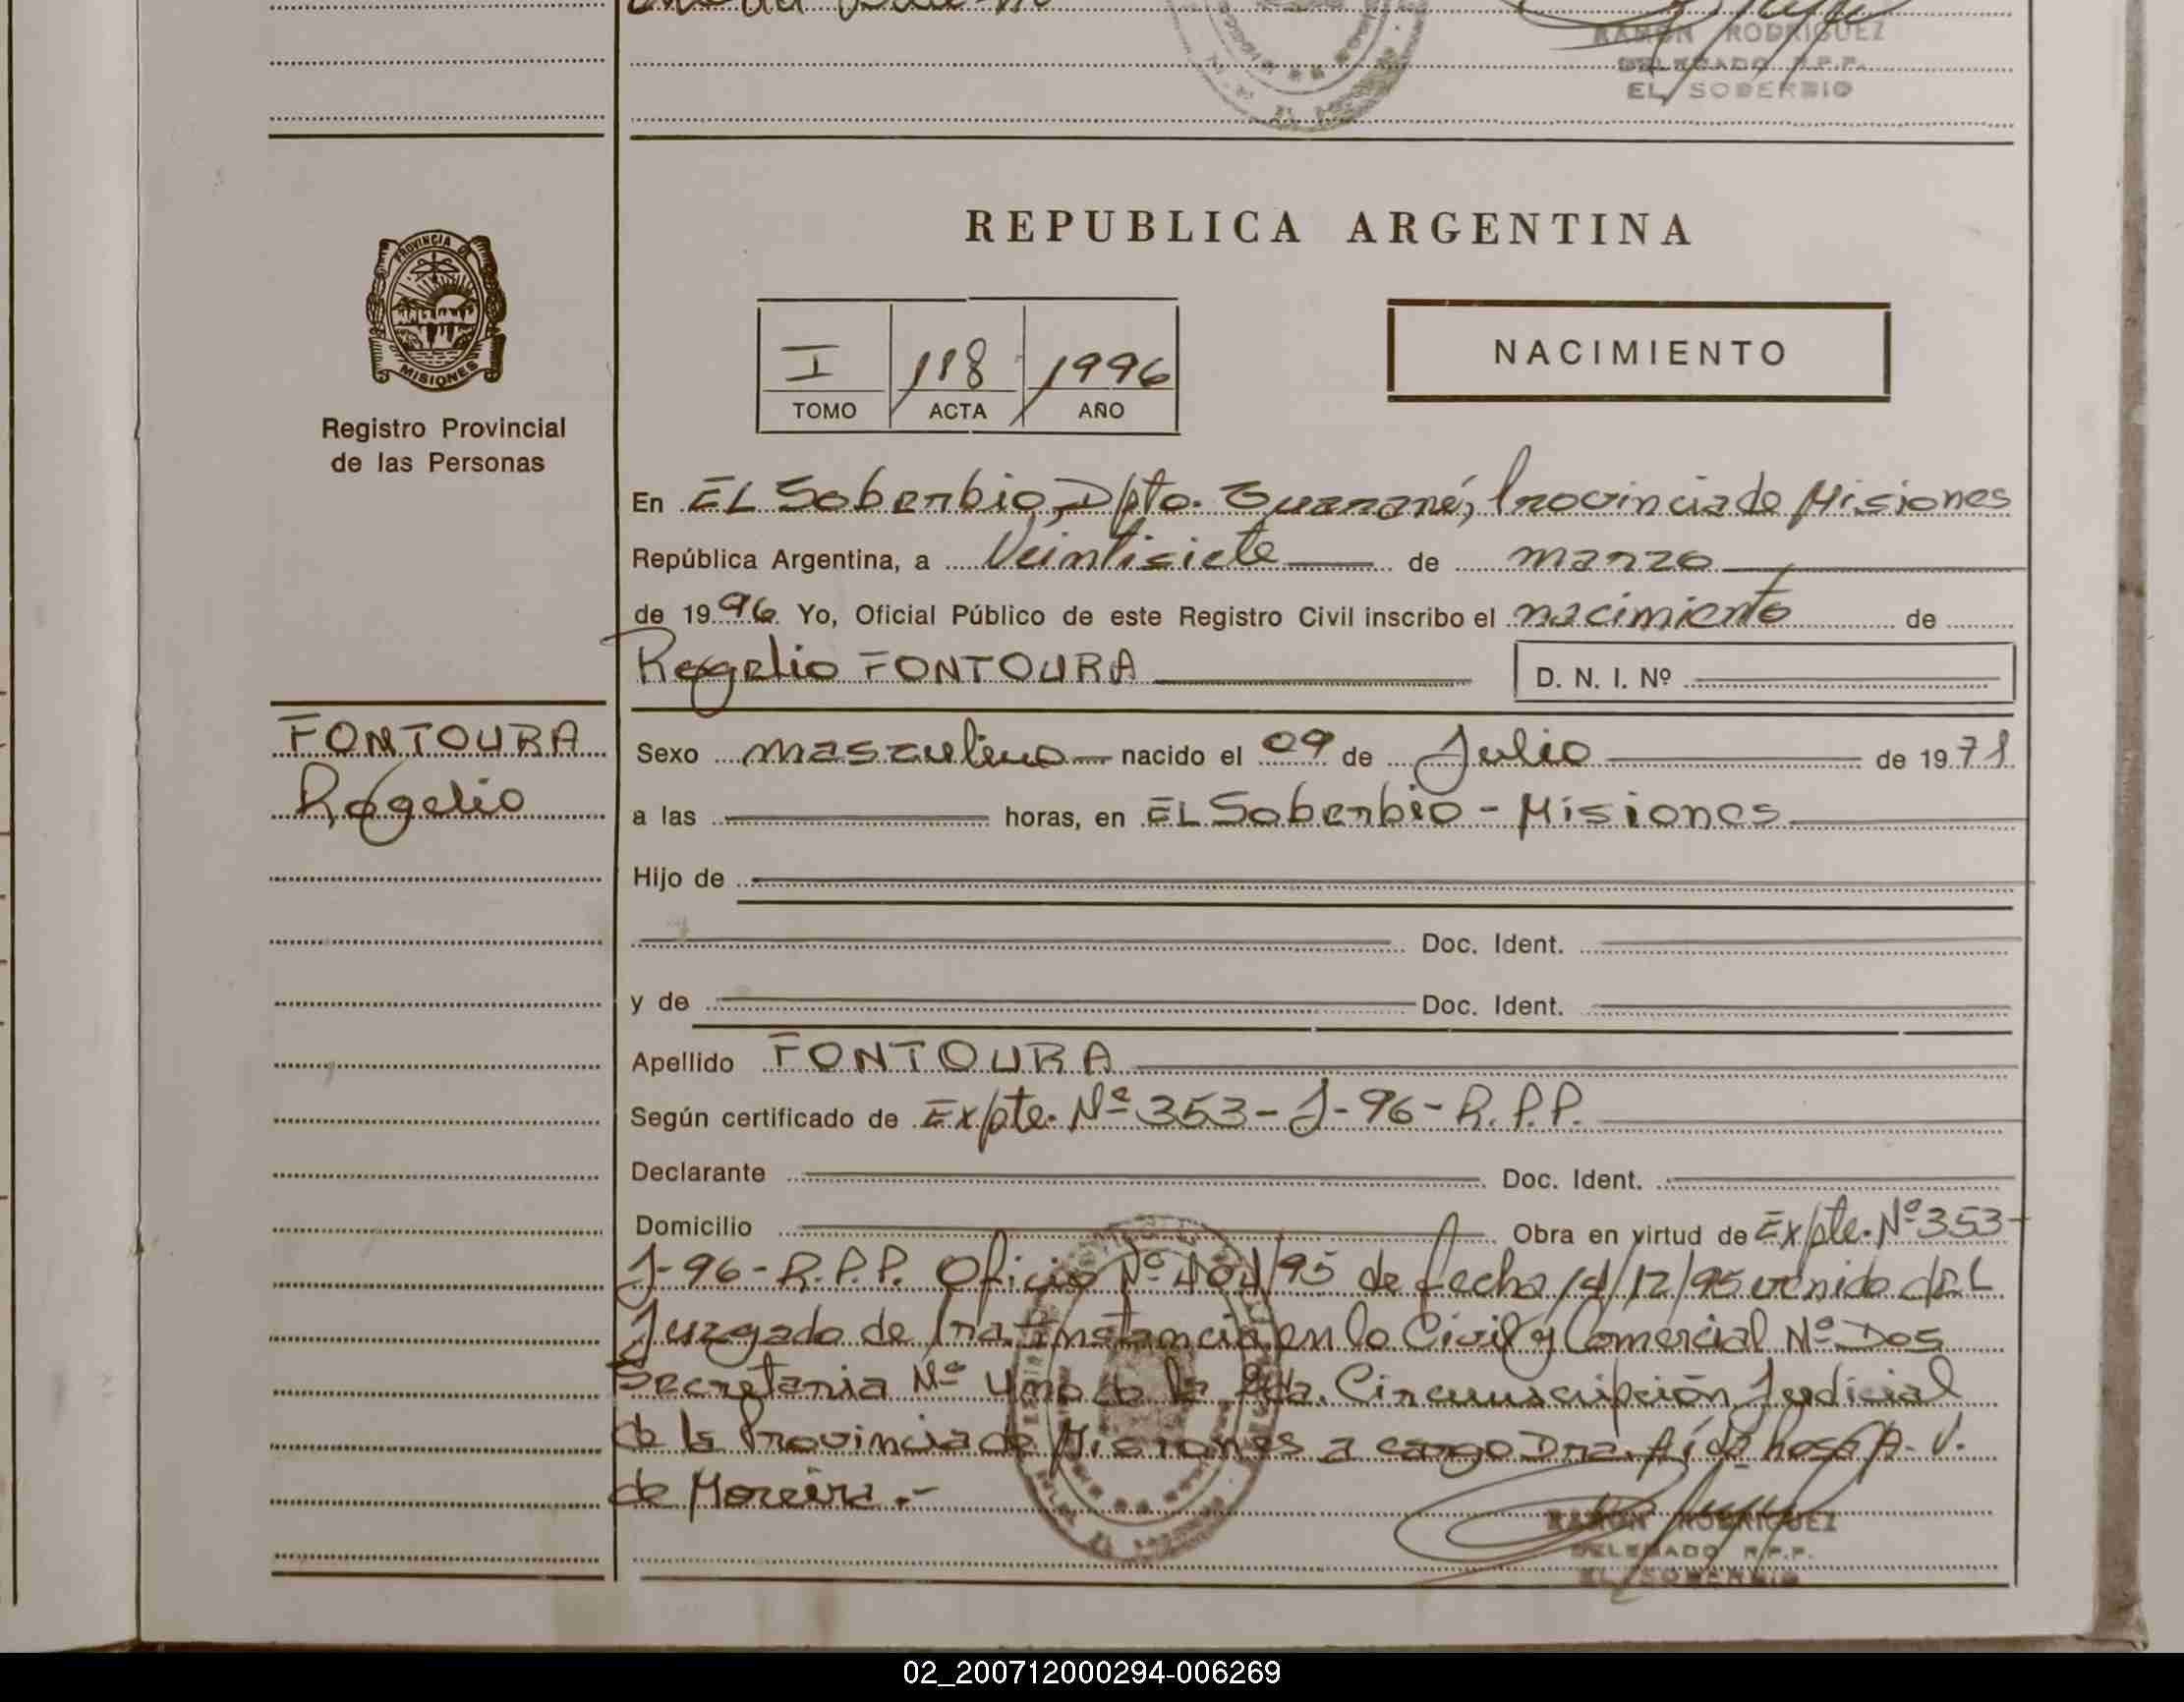 RAMON RODRIGUEZ
DELEGADO R.P.P.
EL SOBERBIO
REPUBLICA ARGENTINA
PROVINCIA DE
MISIONES
Registro Provincial
de las Personas
I 118 1996
TOMO ACTA AÑO
NACIMIENTO
En EL Soberbio, Dpto. Guaraní, Provincia de Misiones
República Argentina, a Veintisiete de marzo
de 1996 Yo, Oficial Público de este Registro Civil inscribo el nacimiento de
Rogelio FONTOURA D. N. I. Nº
FONTOURA
Rogelio
Sexo masculino nacido el 09 de Julio de 1971
a las horas, en EL Soberbio - Misiones
Hijo de
Doc. Ident.
y de Doc. Ident.
Apellido FONTOURA
Según certificado de Expte. Nº 353-J-96-R.P.P.
Declarante Doc. Ident.
Domicilio Obra en virtud de Expte. Nº 353-
J-96-R.P.P. Oficio Nº 404/95 de fecha 14/12/95 venido del
Juzgado de 1ra. Instancia en lo Civil y Comercial Nº Dos
Secretaria Nº Uno de la 2da. Circunscripción Judicial
de la Provincia de Misiones a cargo Dra. Aída Rosa A. V.
de Moreira.-
RAMON RODRIGUEZ
DELEGADO R.P.P.
EL SOBERBIO
02_200712000294-006269